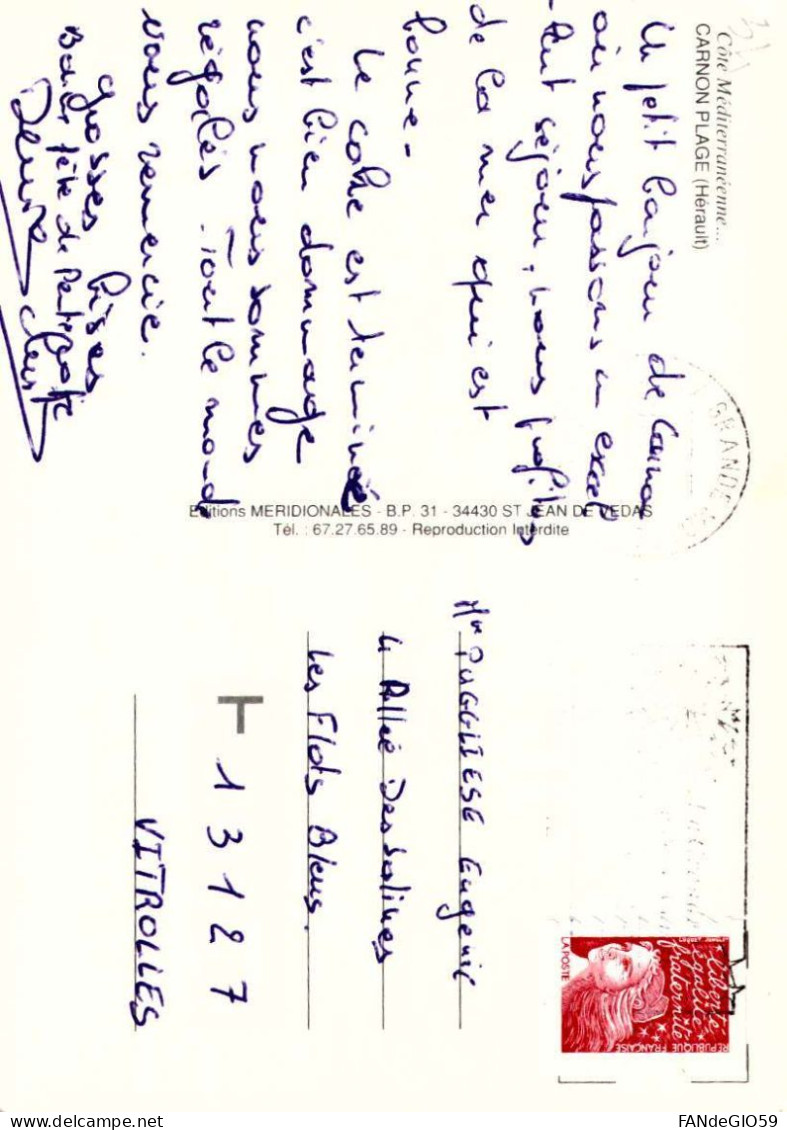 Côte Méditerranéenne...
CARNON PLAGE (Hérault)
Un petit bonjour de Carnon
où nous passons un excel-
-lent séjour, nous profitons
de la mer qui est
bonne-
Le colle est terminée
c'est bien dommage
nous nous sommes
régalés. Tout le monde
vous remercie.
grosses bises
Bonne fête de Pentecote
Denise
Editions MERIDIONALES - B.P. 31 - 34430 ST JEAN DE VEDAS
Tél. : 67.27.65.89 - Reproduction Interdite
GRANDE
LIberté
égalité
fraternité
RÉPUBLIQUE FRANÇAISE
LA POSTE
Mme PUGGLIESE Eugenie
4 Allée Des Salines
Les Flots Bleus.
T
13127
VITROLLES
FANdeGIO59